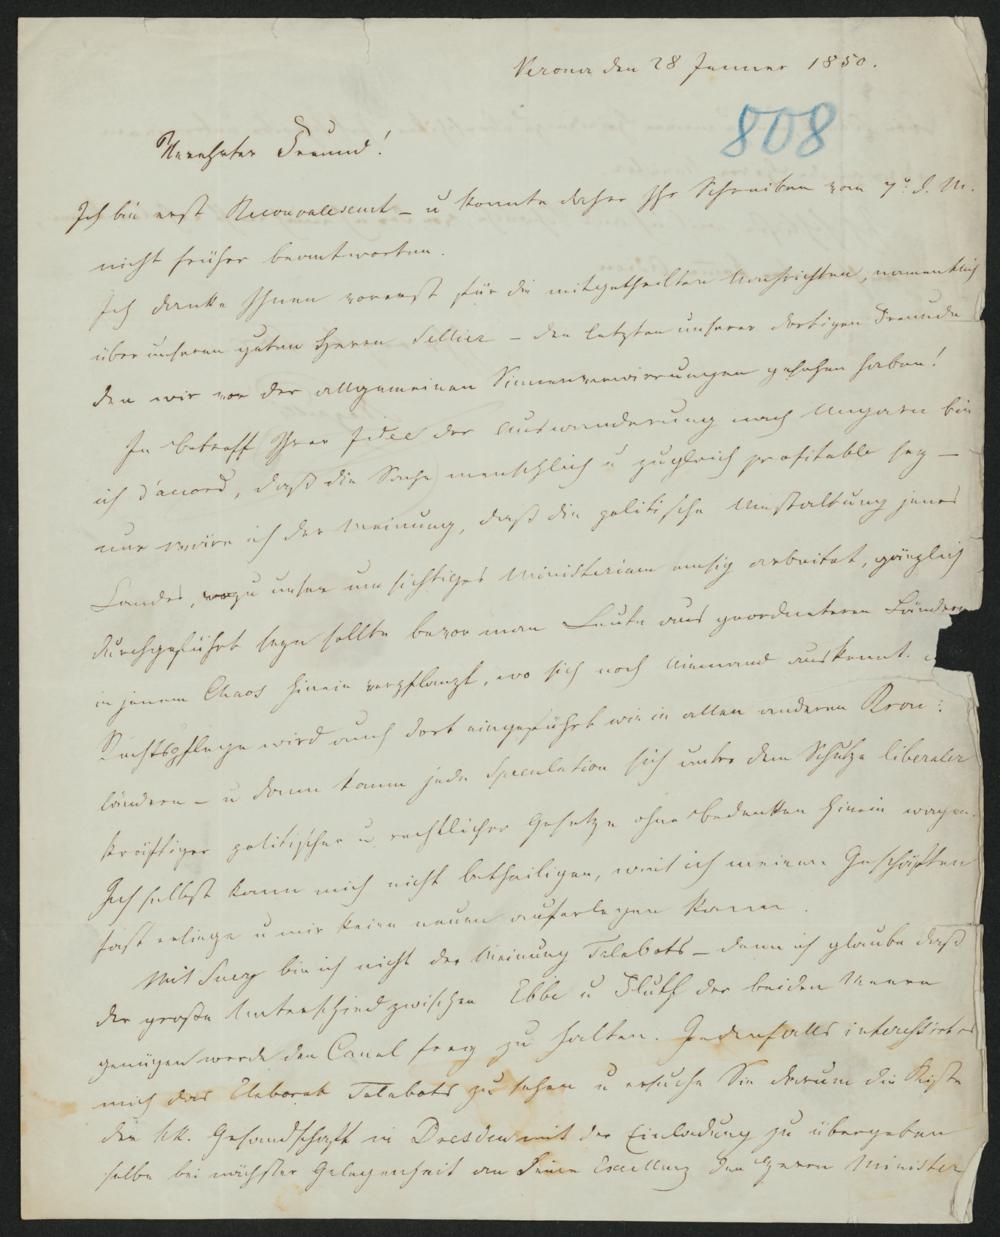 Verona den 28 Jenner 1850.
808
Verehrter Freund!
Ich bin erst Reconvalescent – u konnte daher Ihr Schreiben vom 7t. d. M.
nicht früher beantworten.
Ich danke Ihnen vorerst für die mitgetheilten Nachrichten, namentlich
über unseren guten Herrn Sellier – den letzten unserer dortigen Freunde
den wir vor der allgemeinen Sinnenverwirrungen gesehen haben!
In betreff Ihrer Idee der Auswanderung nach Ungarn bin
ich d'accord, daß die Sache menschlich u zugleich profitable sey –
nur wäre ich der Meinung, daß die politische Umstaltung jenes
Landes, wozu unser umsichtiges Ministerium emsig arbeitet, gänzlich
durchgeführt seyn sollte bevor man Leute aus geordneteren Ländern
in jenem Chaos hinein verpflanzt, wo sich noch Niemand auskennt.
Rechtspflege wird auch dort eingeführt wie in allen anderen Kron:
ländern – u dann kann jede Speculation sich unter dem Schutze liberaler
kräftiger politischer u rechtlicher Gesetze ohne bedenken hinein wagen.
Ich selbst kann mich nicht betheiligen, weil ich meinen Geschäften
fast erliege u mir keine neuen auferlegen kann.
Mit Suez bin ich nicht der Meinung Talabots – denn ich glaube daß
der große Unterschied zwischen Ebbe u Fluth der beiden Meere
genügen werde den Canal frey zu halten. Jedenfalls interessirt es
mich das Elaborat Talabots zu sehen u ersuche Sie darum die Kiste
der kk. Gesandschaft in Dresden mit der Einladung zu übergeben
selbe bei nächster Gelegenheit an Seine Excellenz den Herrn Minister